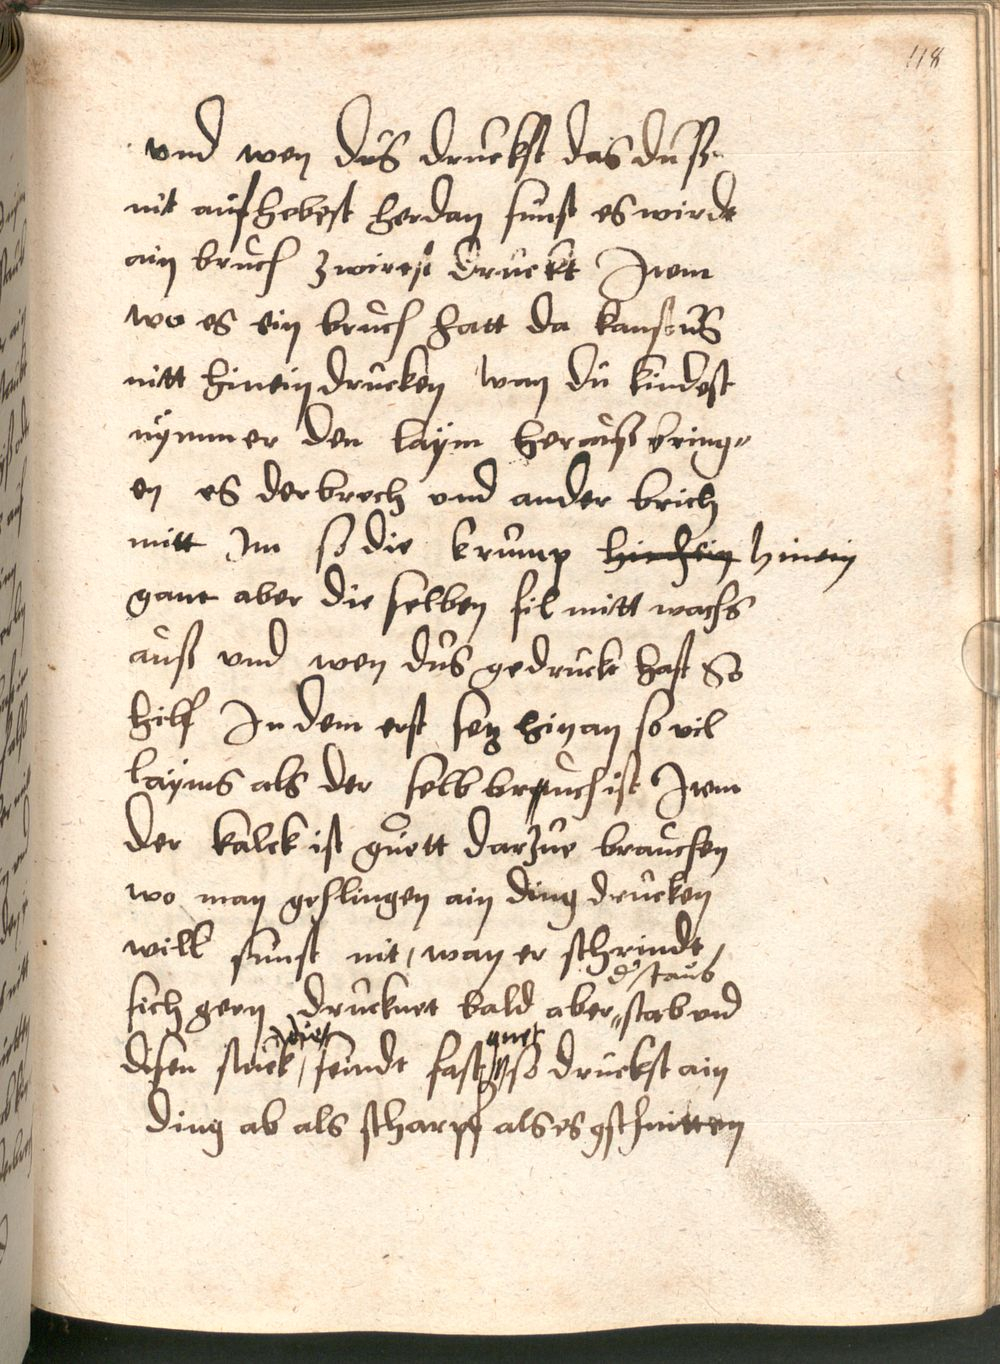 118
vnd wen dus druckst das duß
nit aufhebest herdan sunst es wirdt
ain bruch zwirest druckt Item
wo es ein bruch hatt da kanstus
nitt hinein drucken wan du kindest
nymmer den laym herauß bring„
en es derbrech vnd ander brich
mitt Im so die krump hinein
gant aber die selben fil mitt wachs
auß vnd wen dus gedruckt hast So
hilf In dem erst setz hinan so vil
layms als der selb bruch ist Item
der kalck ist guett darzue brauchen
wo man gehlingen ain ding drucken
will sunst nit, wan er schrindt,
d' staub
sich gern drucknet bald aber„ stab vnd
guet
disen stuck, seindt fast so druckst ain
ding ab als scharpf als es gschnitten